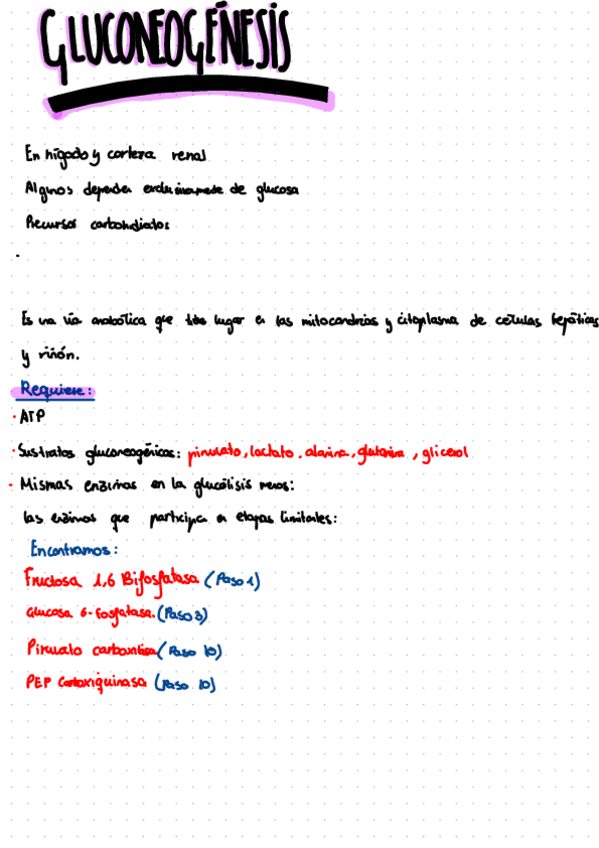 GLUCONEOGÉNESIS
En hígado y corteza renal
Algunos depender exclusivamente de glucosa
Recursos carbohidratos
Es una vía anabólica que tiene lugar en las mitocondrias y citoplasma de células hepáticas
y riñón.
Requiere:
· ATP
· Sustratos gluconeogénicos: piruvato, lactato, alanina, glutamina, glicerol
· Mismas enzimas en la glucólisis menos:
las enzimas que participa en etapas limitantes:
Encontramos:
Fructosa 1,6 Bifosfatasa (Paso 1)
Glucosa 6-fosfatasa. (Paso 3)
Piruvato carboxilasa (Paso 10)
PEP Carboxiquinasa (Paso 10)